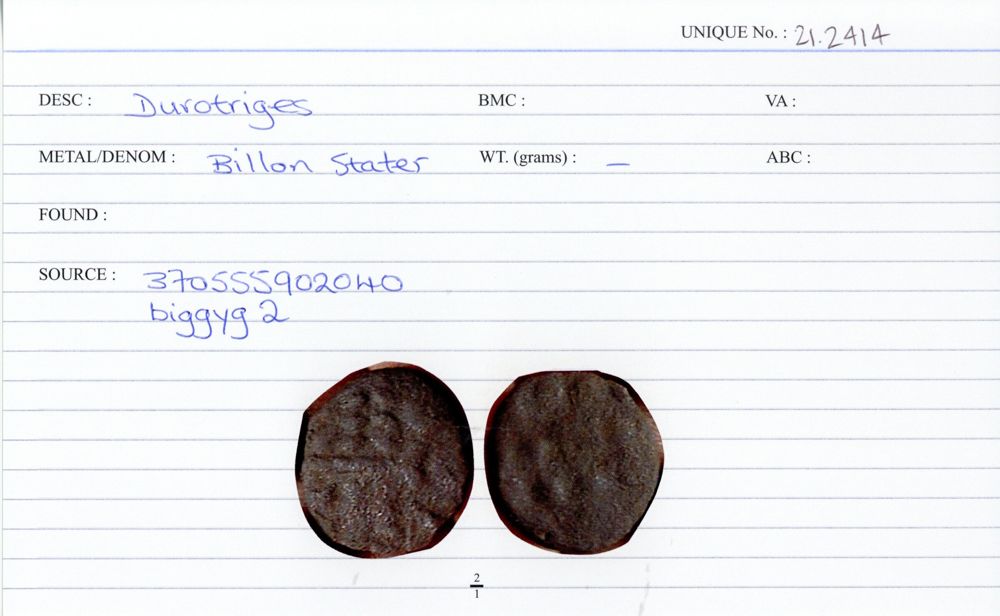 UNIQUE No. : 21.2414
DESC : Durotriges BMC : VA :
METAL/DENOM : Billon Stater WT. (grams) : — ABC :
FOUND :
SOURCE : 370555902040
biggyg2
2
1